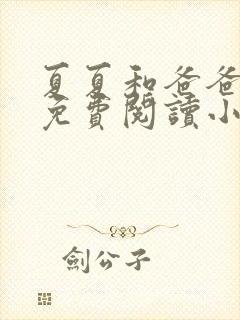 夏夏和爸爸
免費閱讀小
劍公子